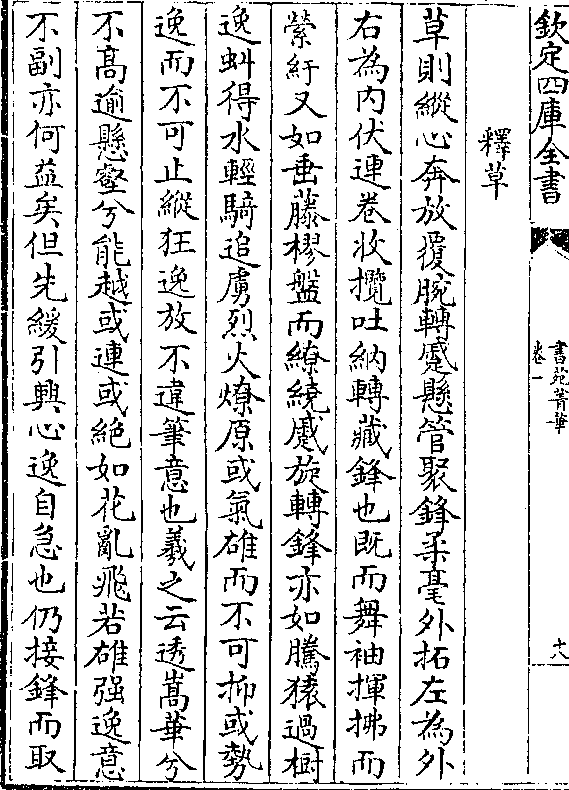 欽定四庫全書
書苑菁華
卷一
十八
釋草
草則縱心奔放覆腕轉蹙懸管聚鋒柔毫外拓左為外
右為内伏連卷收攬吐納轉藏鋒也既而舞袖揮拂而
縈紆又如垂藤樛盤而繚繞蹙旋轉鋒亦如騰猿過樹
逸虯得水輕騎追虜烈火燎原或氣雄而不可抑或勢
逸而不可止縱狂逸放不違筆意也羲之云透嵩華兮
不髙逾懸壑兮能越或連或絶如花亂飛若雄强逸意
不副亦何益矣但先緩引興心逸自急也仍接鋒而取